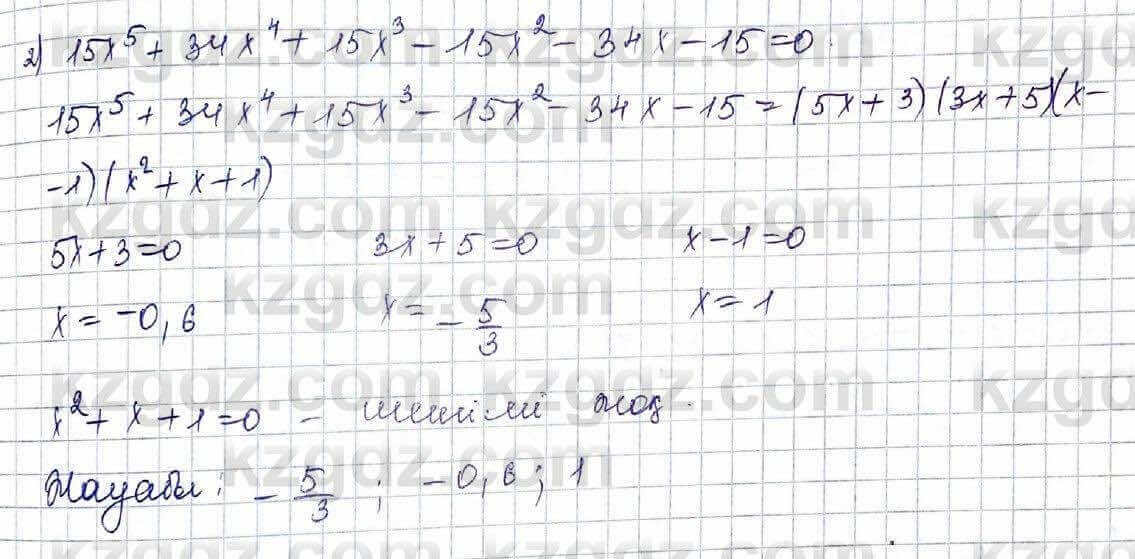 2) 15x⁵ + 34x⁴ + 15x³ − 15x² − 34x − 15 = 0.
15x⁵ + 34x⁴ + 15x³ − 15x² − 34x − 15 = (5x + 3)(3x + 5)(x −
−1)(x² + x + 1)
5x + 3 = 0 3x + 5 = 0 x − 1 = 0
x = −0,6 x = −5/3 x = 1
x² + x + 1 = 0 – шешімі жоқ.
Жауабы: −5/3; −0,6; 1
kzgdz.com